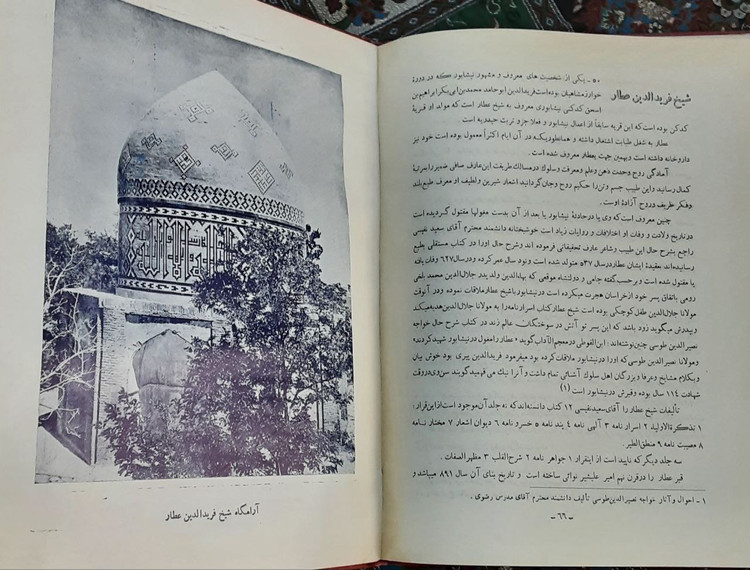 شیخ فریدالدین عطار
۵۰ - یکی از شخصیت های معروف و مشهور نیشابور که در دورهٔ
خوارزمشاهیان بوده است فریدالدین ابوحامد محمد بن ابی بکر ابراهیم بن
اسحق کدکنی نیشابوری معروف به شیخ عطار است که مولد او قریهٔ
کدکن بوده است که این قریه سابقاً از اعمال نیشابور و فعلا جزو تربت حیدریه است .
عطار به شغل طبابت اشتغال داشته و همانطوریکه در آن ایام اکثراً معمول بوده است خود نیز
داروخانه داشته است و بهمین جهت بعطار معروف شده است .
آمادگی روح وحدت ذهن وعلم ومعرفت وسلوك در مسالك طریقت این عارف صافی ضمیر را بمرتبهٔ
کمال رسانید و این طبیب جسم وتن را حکیم روح وجان گردانید اشعار شیرین و لطیف او معرف طبع بلند
وفکر ظریف و روح آزادهٔ اوست .
چنین معروف است که وی یا در حادثهٔ نیشابور یا بعد از آن بدست مغولها مقتول گردیده است
در تاریخ ولادت و وفات او اختلافات و روایات زیاد است خوشبختانه دانشمند محترم آقای سعید نفیسی
راجع بشرح حال این طبیب وشاعر عارف تحقیقاتی فرموده اند وشرح حال اورا در کتاب مستقلی بطبع
رسانیده اند بعقیدهٔ ایشان عطار در سال ۵۳۷ متولد شده است ونود سال عمر کرده و در سال ۶۲۷ وفات یافته
یا مقتول شده است و بر حسب گفته جامی و دولتشاه موقعی که بهاءالدین ولد پدر جلال الدین محمد بلخی
رومی باتفاق پسر خود از خراسان هجرت میکرده است در نیشابور با شیخ عطار ملاقات نموده و در آنوقت
مولانا جلال الدین طفل کوچکی بوده است شیخ عطار کتاب اسرارنامه را به مولانا جلال الدین هدیه میکند
و بپدرش میگوید زود باشد که این پسر تو آتش در سوختگان عالم زند در کتاب شرح حال خواجه
نصیرالدین طوسی چنین نوشته اند: ابن الفوطی در معجم الآداب گوید «عطار را مغول در نیشابور شهید کردند»
و مولانا نصیرالدین طوسی که اورا در نیشابور ملاقات کرده بود میفرمود فریدالدین پیری بود خوش بیان
و بکلام مشایخ وعرفا و بزرگان اهل سلوك آشنائی تمام داشت و آنرا نیك می فهمید گویند سن وی در وقت
شهادت ۱۱۴ سال بوده و قبرش در نیشابور است (۱)
تألیفات شیخ عطار را آقای سعید نفیسی ۱۲ کتاب دانسته اند که نه جلد آن موجود است از این قرار:
۱ تذکرة الاولیاء ۲ اسرار نامه ۳ آلهی نامه ۴ پند نامه ۵ خسرو نامه ۶ دیوان اشعار ۷ مختار نامه
۸ مصیبت نامه ۹ منطق الطیر .
سه جلد دیگر که ناپید است از اینقرار ۱ جواهر نامه ۲ شرح القلب ۳ مظهر الصفات .
قبر عطار را در قرن نهم امیر علیشیر نوائی ساخته است و تاریخ بنای آن سال ۸۹۱ میباشد و
۱ - احوال و آثار خواجه نصیرالدین طوسی تألیف دانشمند محترم آقای مدرس رضوی .
-۶۹-
آرامگاه شیخ فریدالدین عطار